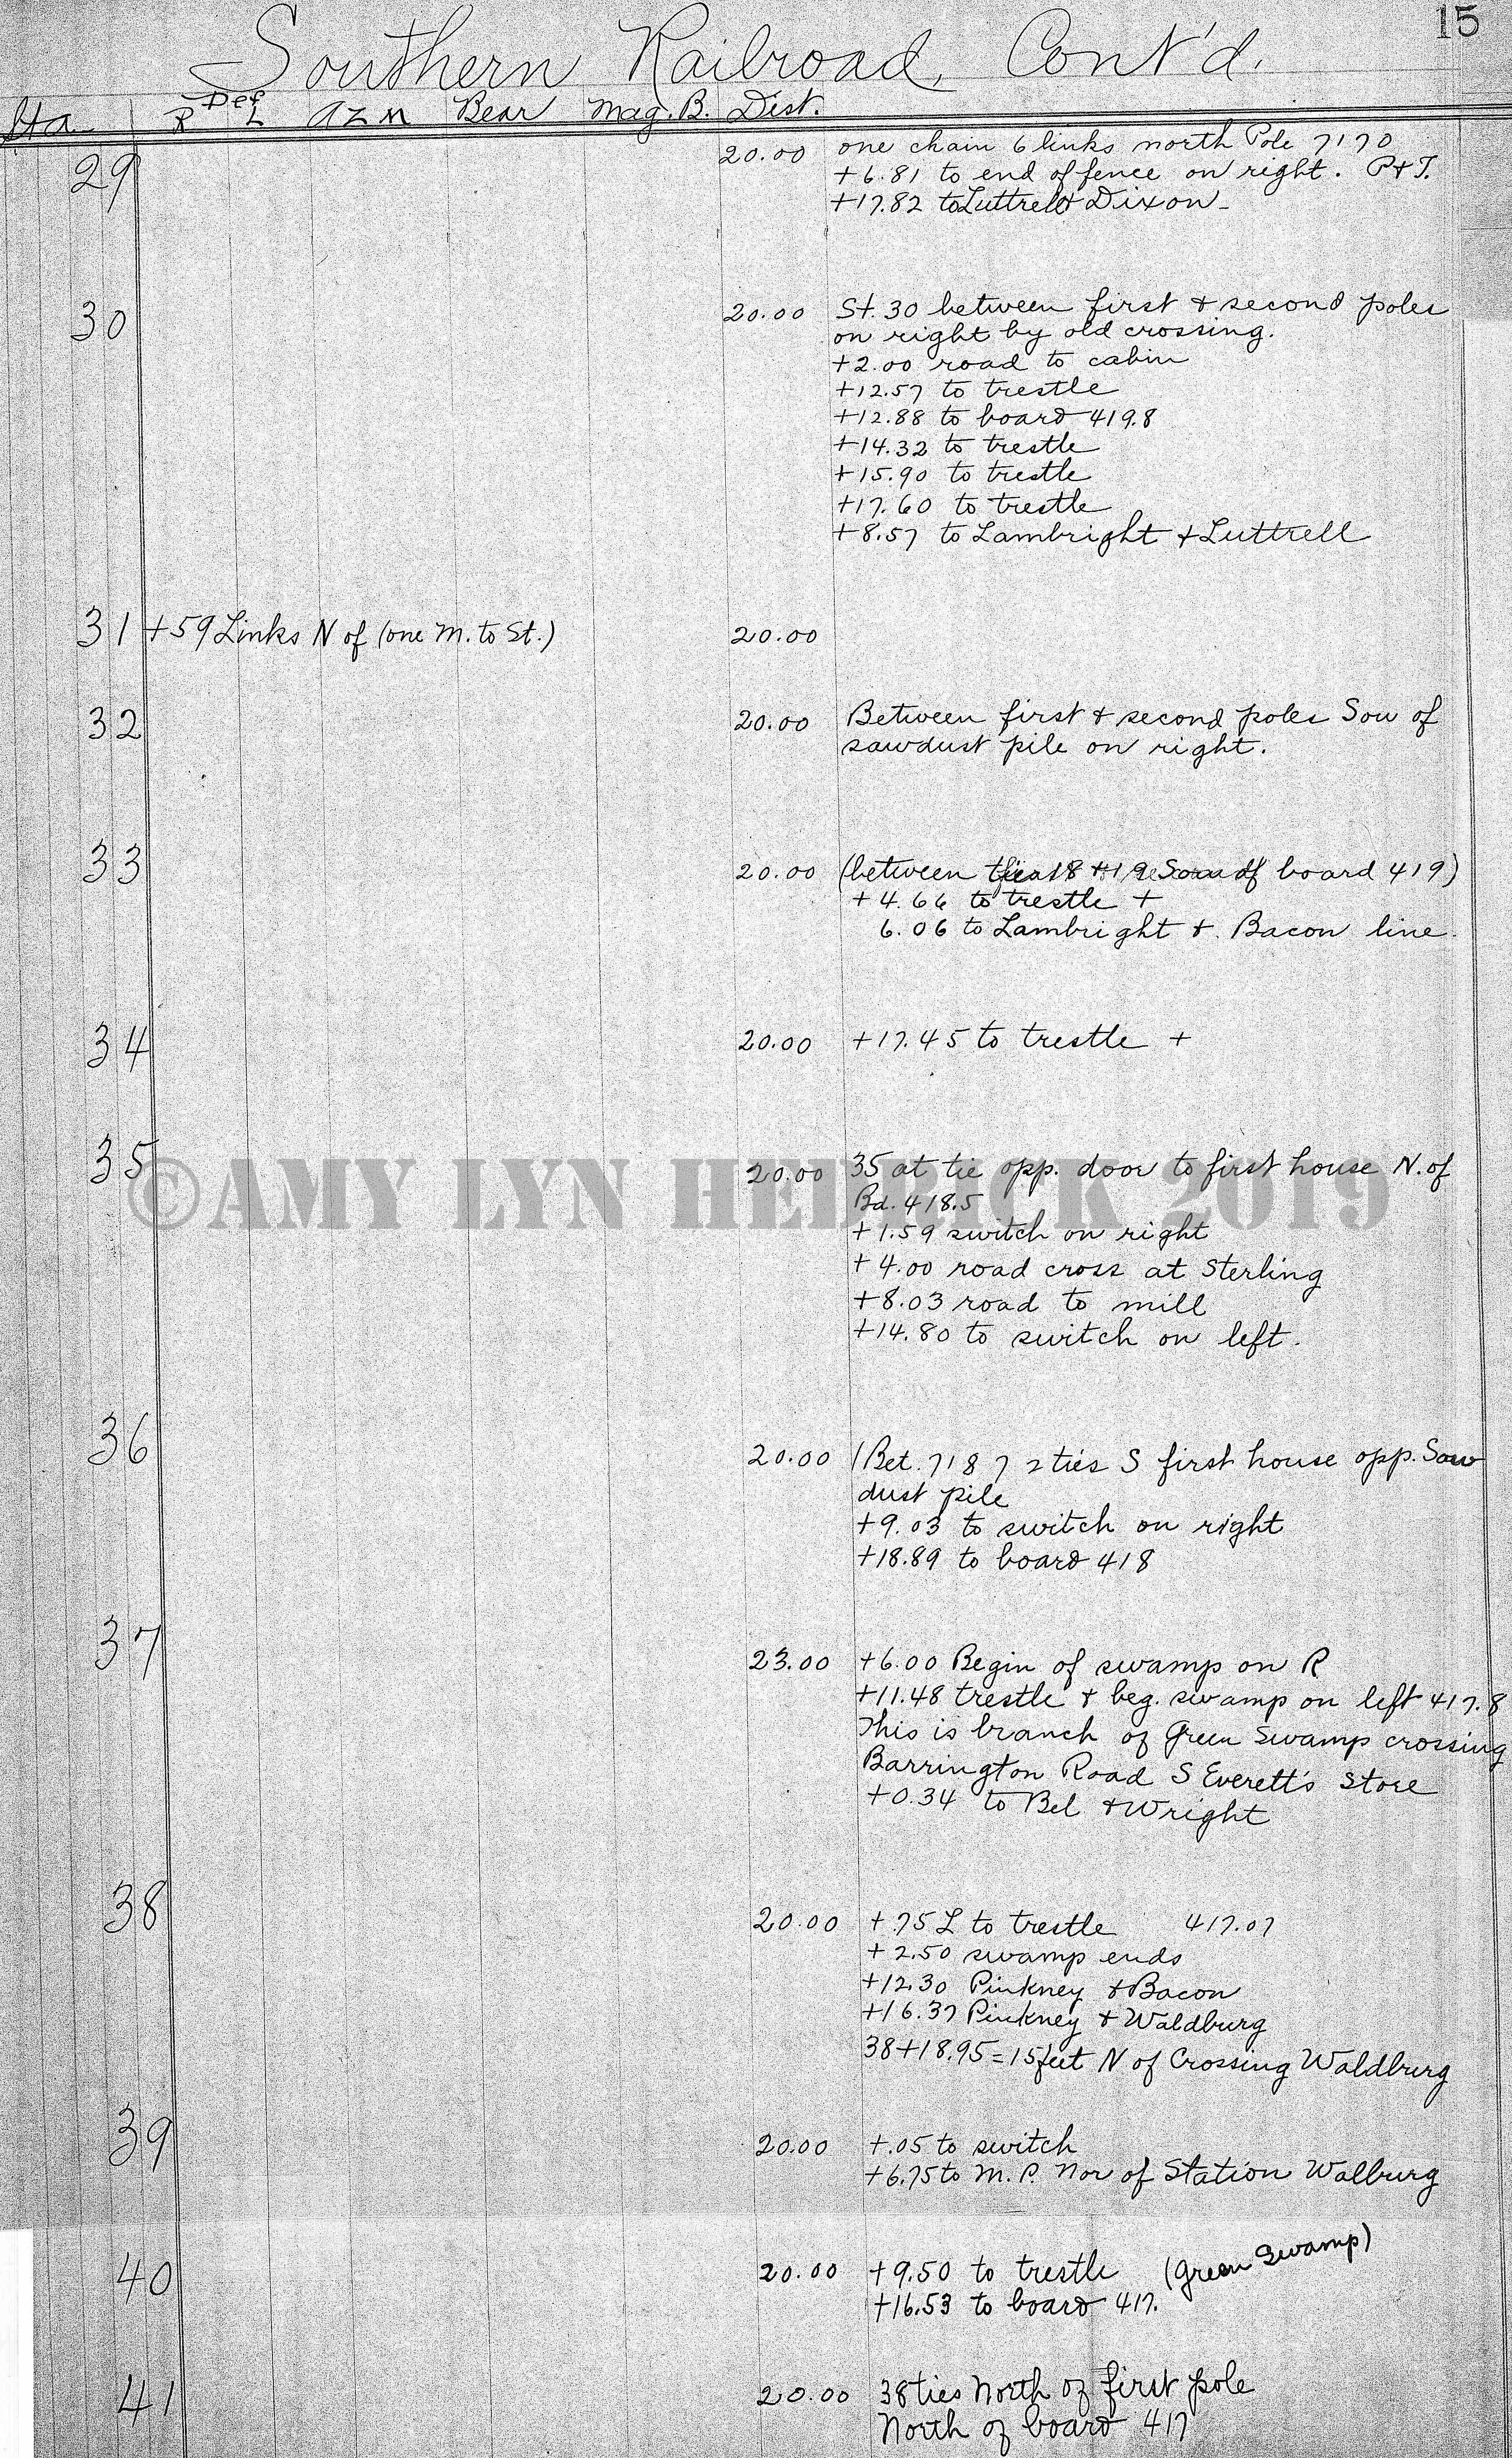 15
Southern Railroad, Cont'd.
Sta. R Def L Azm Bear Mag. B. Dist.
29 20.00 one chain 6 links north Pole 7170
+6.81 to end of fence on right. P&T.
+17.82 to Luttrell & Dixon-
30 20.00 St. 30 between first & second poles
on right by old crossing.
+2.00 road to cabin
+12.57 to trestle
+12.88 to board 419.8
+14.32 to trestle
+15.90 to trestle
+17.60 to trestle
+8.57 to Lambright & Luttrell
31 +59 Links N of (one M. to St.) 20.00
32 20.00 Between first & second poles Sou of
sawdust pile on right.
33 20.00 (between 18 & 19 Sou of board 419)
+4.66 to trestle +
6.06 to Lambright & Bacon line.
34 20.00 +17.45 to trestle +
35 20.00 35 at tie opp. door to first house N. of
Bd. 418.5
©AMY LYN HEDRICK 2019
+1.59 switch on right
+4.00 road cross at Sterling
+8.03 road to mill
+14.80 to switch on left.
36 20.00 (Bet. 7187 2 ties S first house opp. Saw
dust pile
+9.03 to switch on right
+18.89 to board 418
37 23.00 +6.00 Begin of swamp on R
+11.48 trestle & beg. swamp on left 417.8
This is branch of Green Swamp crossing
Barrington Road S Everett's store
+0.34 to Bel & Wright
38 20.00 +.75 L to trestle 417.07
+2.50 swamp ends
+12.30 Pinkney & Bacon
+16.37 Pinkney & Waldburg
38+18.95=15 feet N of Crossing Waldburg
39 20.00 +.05 to switch
+6.75 to M.P. Nor of Station Walburg
40 20.00 +9.50 to trestle (Green Swamp)
+16.53 to board 417.
41 20.00 38 ties North of first pole
North of board 417